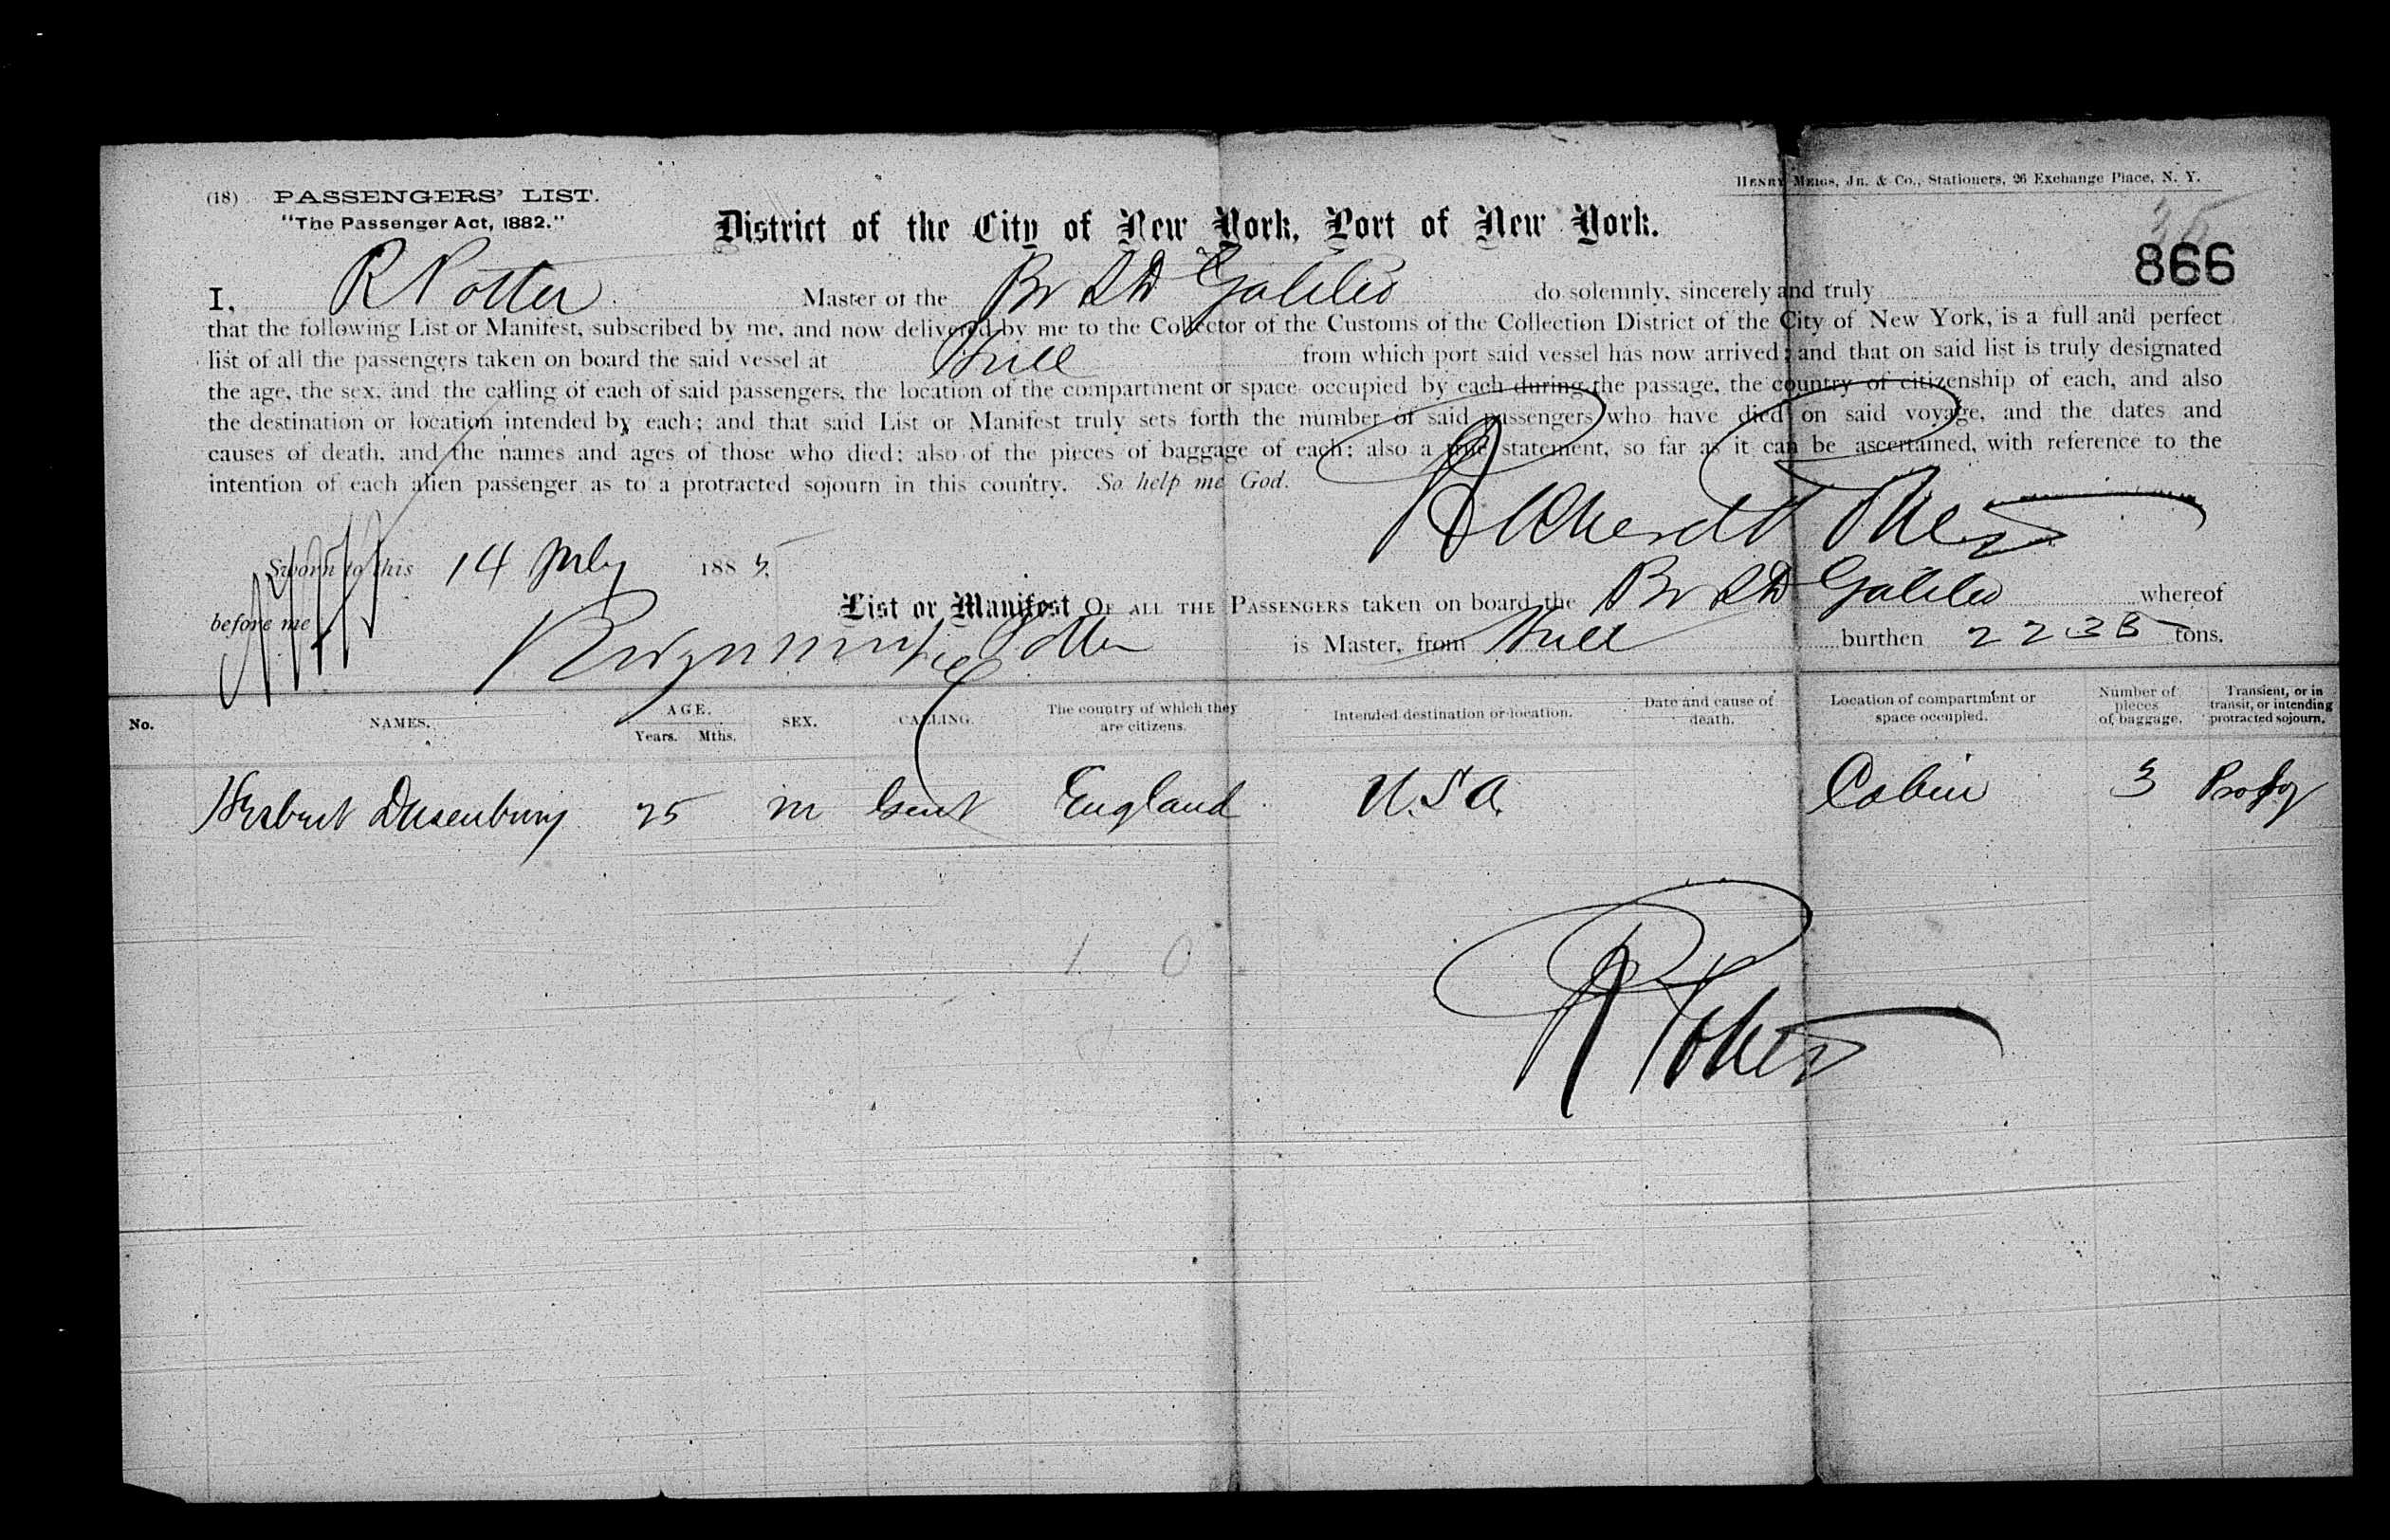 HENRY MEIGS, JR. & CO., Stationers, 26 Exchange Place, N. Y.
(18) PASSENGERS' LIST.
"The Passenger Act, 1882."
District of the City of New York, Port of New York.
35
866
I, R Potter Master of the Br SS Galileo do solemnly, sincerely and truly
that the following List or Manifest, subscribed by me, and now delivered by me to the Collector of the Customs of the Collection District of the City of New York, is a full and perfect
list of all the passengers taken on board the said vessel at Hull from which port said vessel has now arrived; and that on said list is truly designated
the age, the sex, and the calling of each of said passengers, the location of the compartment or space occupied by each during the passage, the country of citizenship of each, and also
the destination or location intended by each; and that said List or Manifest truly sets forth the number of said passengers who have died on said voyage, and the dates and
causes of death, and the names and ages of those who died; also of the pieces of baggage of each; also a true statement, so far as it can be ascertained, with reference to the
intention of each alien passenger as to a protracted sojourn in this country. So help me God.
Richard Potter
Sworn to this 14 July 1885
before me
List or Manifest OF ALL THE PASSENGERS taken on board the Br SS Galileo whereof
Potter is Master, from Hull burthen 2235 tons.
No. NAMES. AGE. Years. Mths. SEX. CALLING. The country of which they are citizens. Intended destination or location. Date and cause of death. Location of compartment or space occupied. Number of pieces of baggage. Transient, or in transit, or intending protracted sojourn.
Herbert Dusenbury 25 m Gent England U.S.A. Cabin 3
1 0
R Potter